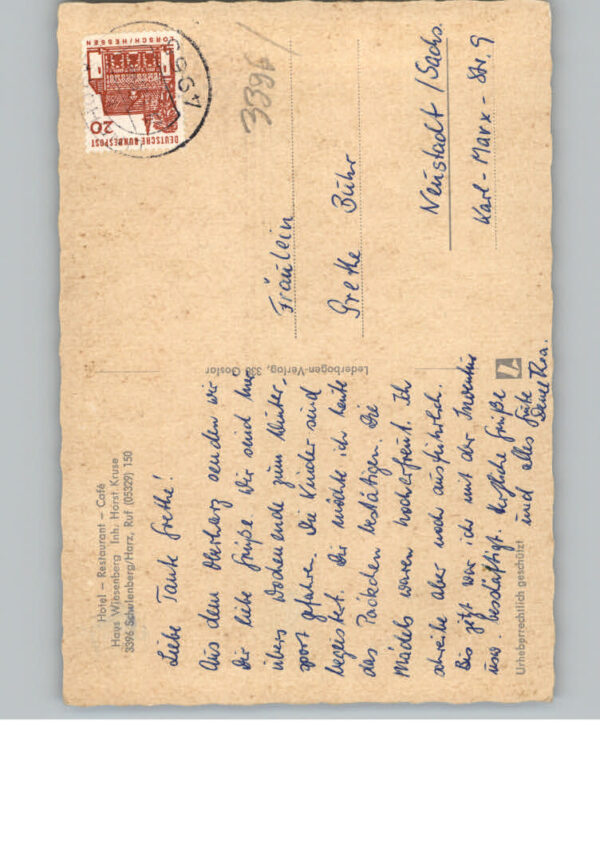 Hotel – Restaurant – Café
Haus Wiesenberg Inh. Horst Kruse
3396 Schulenberg/Harz, Ruf (05329) 150
Liebe Tante Grethe!
Aus dem Oberharz senden wir
Dir liebe Grüße. Wir sind hier
übers Wochenende zum Winter-
sport gefahren. Die Kinder sind
begeistert. Dir möchte ich heute
das Päckchen bestätigen. Die
Mädels waren hocherfreut. Ich
schreibe aber noch ausführlich.
Bis jetzt war ich mit der Inventur
usw. beschäftigt. Herzliche Grüße
und alles Gute
Deine Thea.
Urheberrechtlich geschützt
Lederbogen-Verlag, 338 Goslar
DEUTSCHE BUNDESPOST
20
LORSCH/HESSEN
3396
Fräulein
Grethe Bühr
Neustadt / Sachs.
Karl-Marx-Str. 9